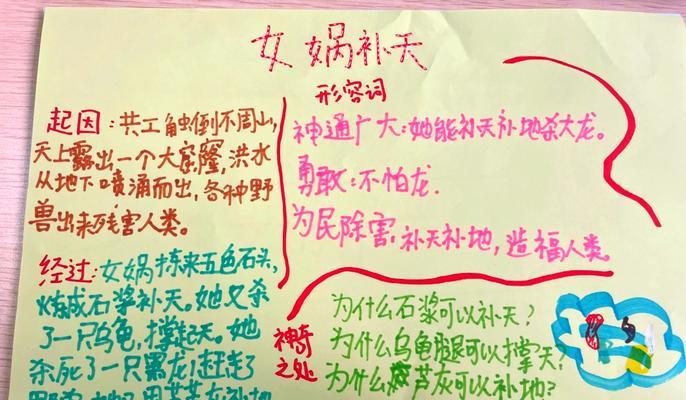 女娲补天
起因：共工触倒不周山，
天上露出一个大窟窿，洪水
从地下喷涌而出，各种野
兽出来残害人类。
经过：女娲拣来五色石头，
炼成石浆补天。她又杀
了一只乌龟，撑起天。她
杀死了一只黑龙！赶走了
形容词
神通广大：她能补天补地杀大龙。
勇敢：不怕龙．
为民除害，补天补地，造福人类。
神奇
之处
为什么石浆可以补天？
为什么乌龟腿可以撑天？
为什么芦灰可以补地？